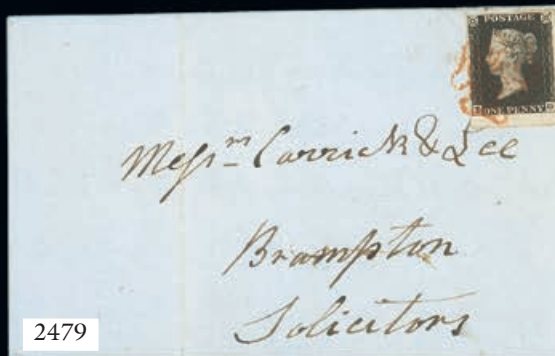 POSTAGE
ONE PENNY
Messrs Carrick & Lee
Brampton
Solicitors
2479